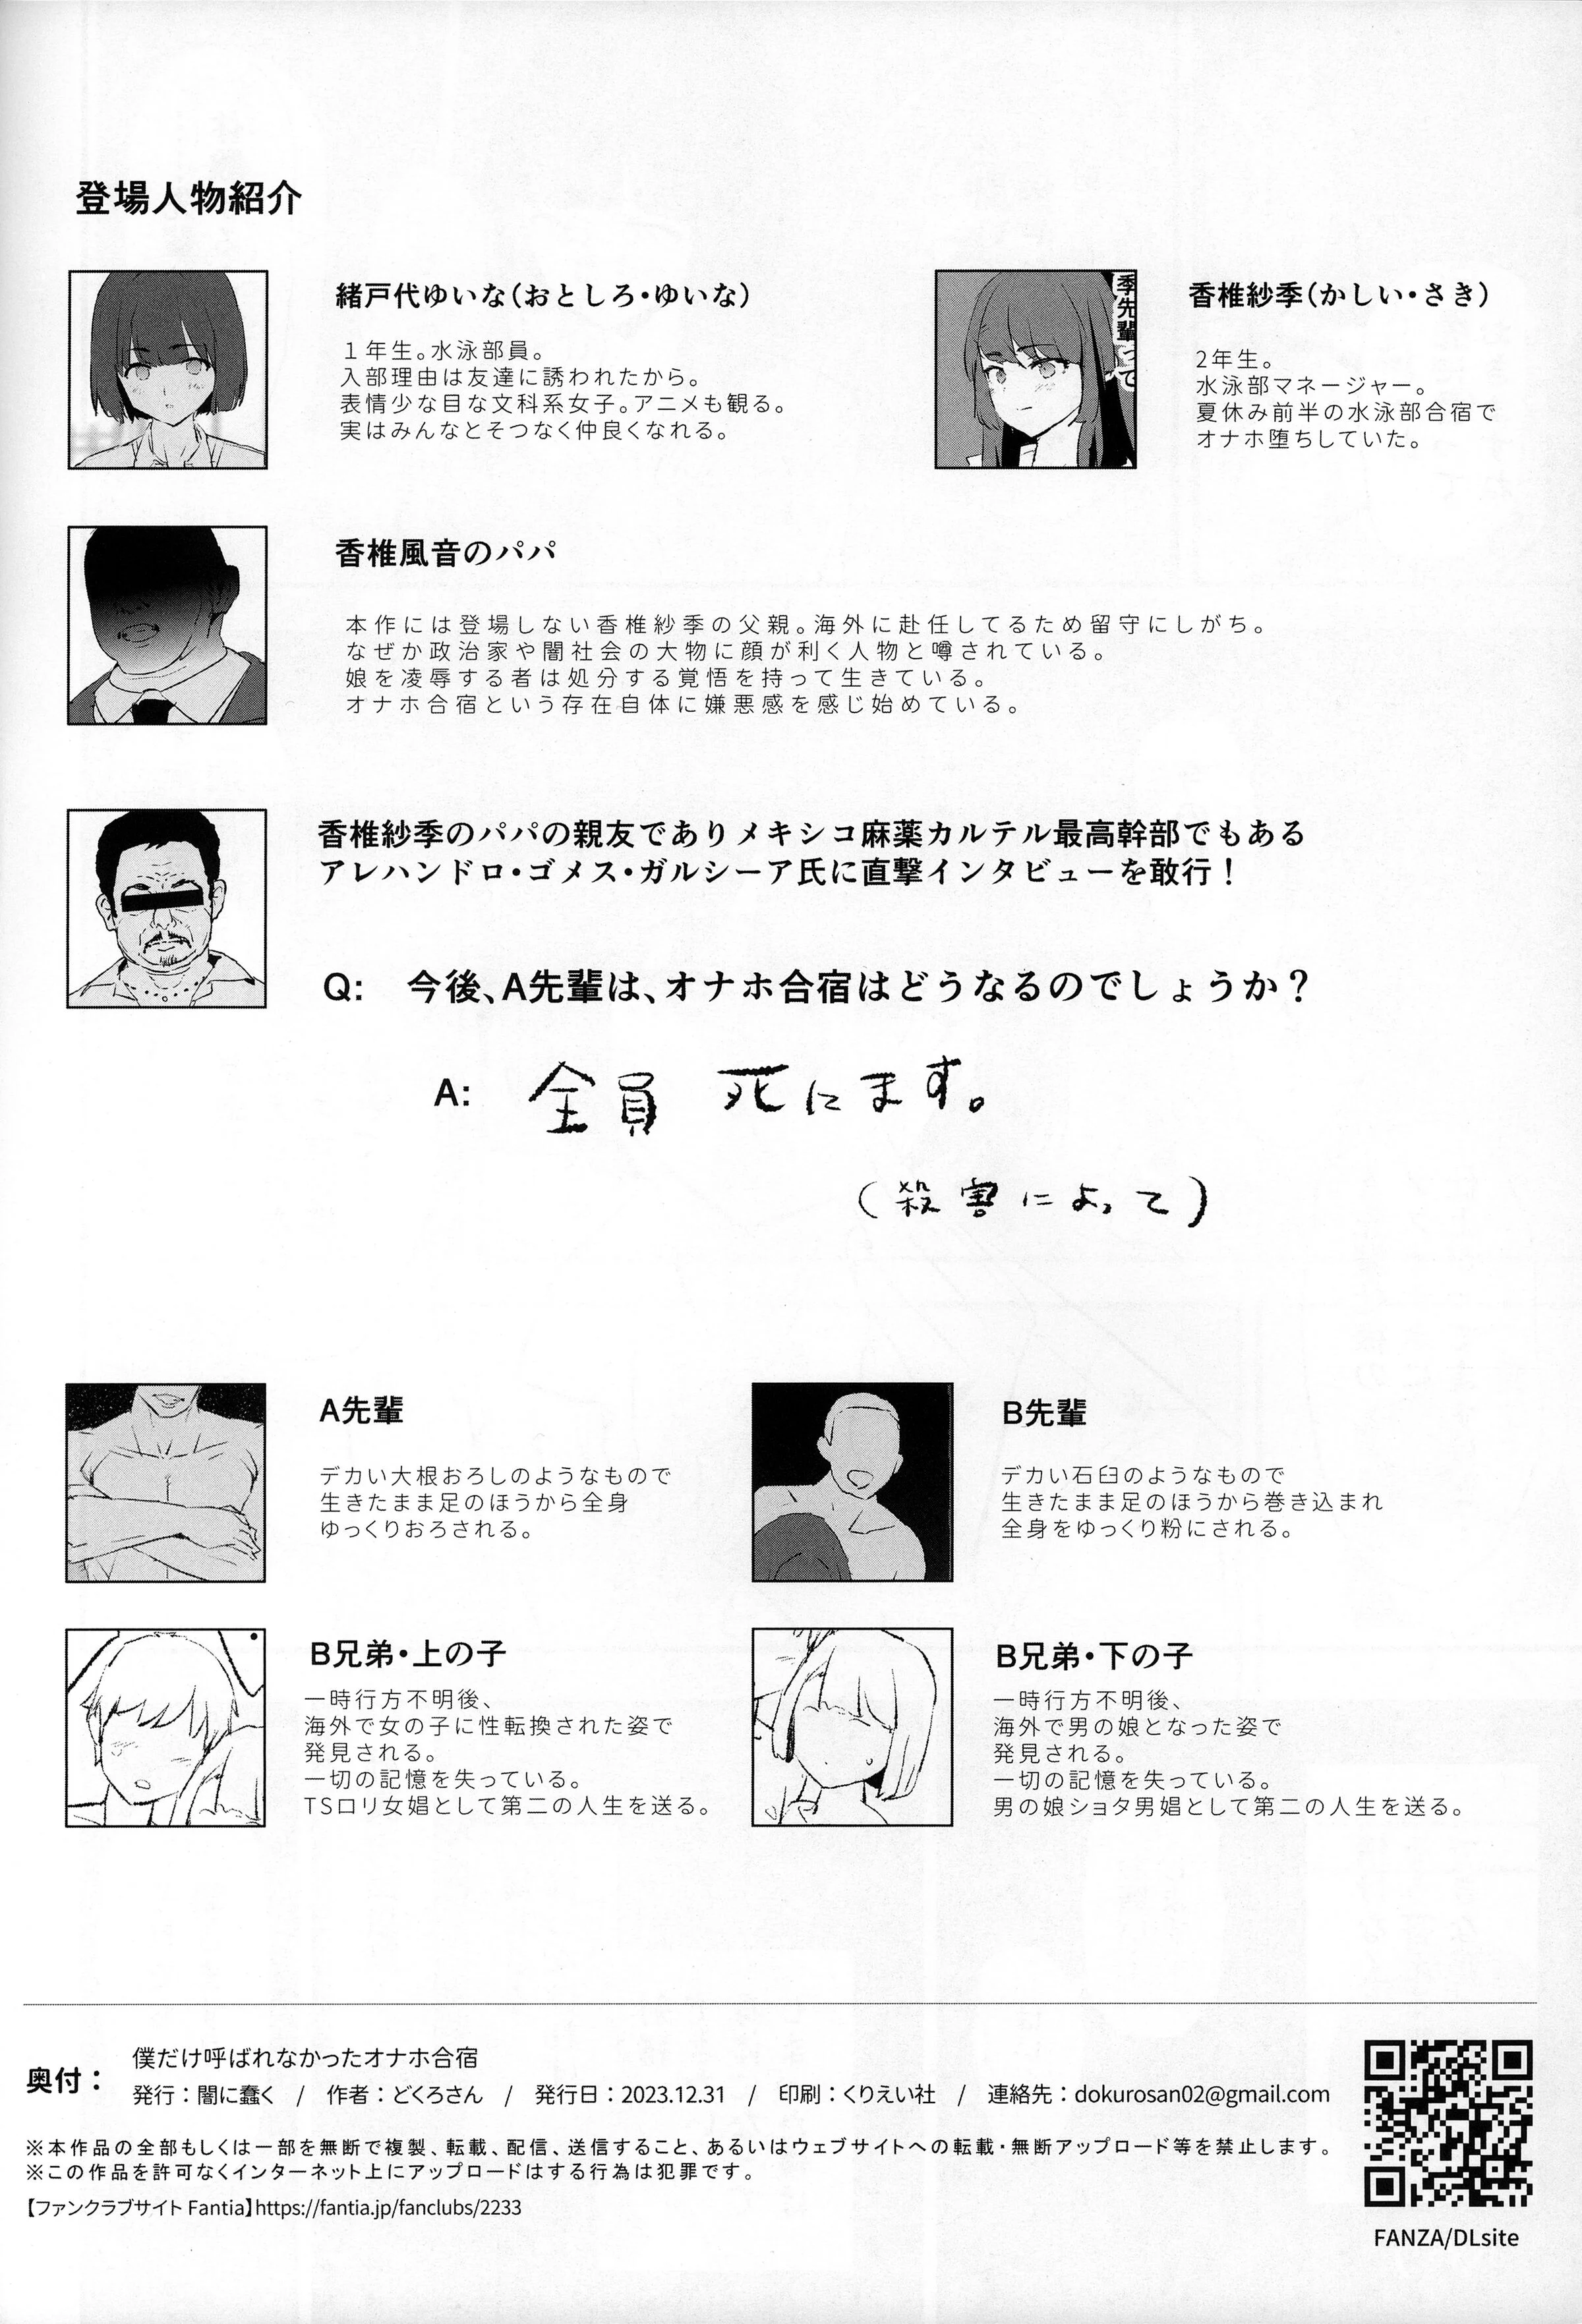 登場人物紹介
緒戸代ゆいな(おとしろ・ゆいな)
1年生。水泳部員。
入部理由は友達に誘われたから。
表情少な目な文科系女子。アニメも観る。
実はみんなとそつなく仲良くなれる。
季先輩って
香椎紗季(かしい・さき)
2年生。
水泳部マネージャー。
夏休み前半の水泳部合宿で
オナホ堕ちしていた。
香椎風音のパパ
本作には登場しない香椎紗季の父親。海外に赴任してるため留守にしがち。
なぜか政治家や闇社会の大物に顔が利く人物と噂されている。
娘を凌辱する者は処分する覚悟を持って生きている。
オナホ合宿という存在自体に嫌悪感を感じ始めている。
香椎紗季のパパの親友でありメキシコ麻薬カルテル最高幹部でもある
アレハンドロ・ゴメス・ガルシーア氏に直撃インタビューを敢行!
Q: 今後、A先輩は、オナホ合宿はどうなるのでしょうか?
A: 全員 死にます。
(殺害によって)
A先輩
デカい大根おろしのようなもので
生きたまま足のほうから全身
ゆっくりおろされる。
B先輩
デカい石臼のようなもので
生きたまま足のほうから巻き込まれ
全身をゆっくり粉にされる。
B兄弟・上の子
一時行方不明後、
海外で女の子に性転換された姿で
発見される。
一切の記憶を失っている。
TSロリ女娼として第二の人生を送る。
B兄弟・下の子
一時行方不明後、
海外で男の娘となった姿で
発見される。
一切の記憶を失っている。
男の娘ショタ男娼として第二の人生を送る。
奥付:
僕だけ呼ばれなかったオナホ合宿
発行:闇に蠢く / 作者:どくろさん / 発行日:2023.12.31 / 印刷:くりえい社 / 連絡先:dokurosan02@gmail.com
※本作品の全部もしくは一部を無断で複製、転載、配信、送信すること、あるいはウェブサイトへの転載・無断アップロード等を禁止します。
※この作品を許可なくインターネット上にアップロードはする行為は犯罪です。
【ファンクラブサイト Fantia】https://fantia.jp/fanclubs/2233
FANZA/DLsite